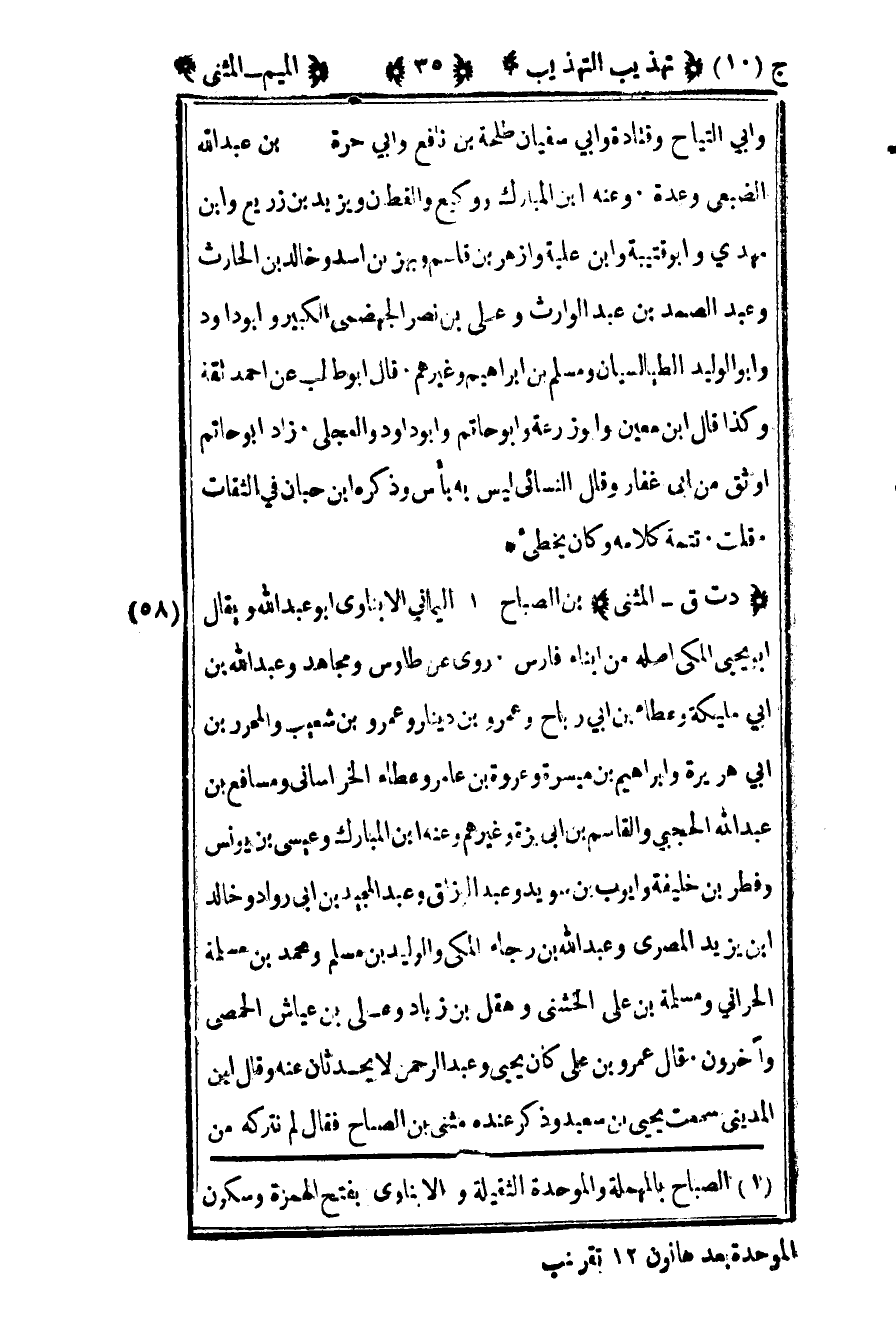 ج (١٠) ﴿ تهذيب التهذيب ﴾ ﴿ ٣٥ ﴾ ﴿ الميم ـ المثنى ﴾
وابي التياح وقتادة وابي سفيان طلحة بن نافع وابي حرة بن عبدالله
الضبعى وعدة ٠ وعنه ابن المبارك ووكيع والقطان ويزيد بن زريع وابن
مهدي و ابو قتيبة وابن علية وازهر بن قاسم وبهز بن اسد وخالد بن الحارث
وعبد الصمد بن عبد الوارث و على بن نصر الجهضمى الكبير و ابو داود
وابو الوليد الطيالسيان ومسلم بن ابراهيم وغيرهم ٠ قال ابو طالب عن احمد ثقة
وكذا قال ابن معين وابو زرعة وابو حاتم وابو داود والعجلى ٠ زاد ابو حاتم
اوثق من ابى غفار وقال النسائى ليس به بأس وذكره ابن حبان في الثقات
٠ قلت ٠ تتمة كلامه وكان يخطئ *
﴿ د ت ق ـ المثنى ﴾ بن الصباح ١ اليماني الابناوى ابو عبدالله ويقال
(٥٨)
ابو يحيى المكى اصله من ابناء فارس ٠ روى عن طاوس ومجاهد وعبدالله بن
ابي مليكة وعطاء بن ابي رباح وعمرو بن دينار وعمرو بن شعيب والمحرر بن
ابي هريرة وابراهيم بن ميسرة وعروة بن عامر وعطاء الخراسانى ومسافع بن
عبدالله الحجبي والقاسم بن ابى بزة وغيرهم وعنه ابن المبارك وعيسى بن يونس
وفطر بن خليفة وايوب بن سويد وعبد الرزاق وعبد المجيد بن ابى رواد وخالد
ابن يزيد المصرى وعبدالله بن رجاء المكى والوليد بن مسلم ومحمد بن مسلمة
الحرافي ومسلمة بن على الخشنى و هقل بن زياد وعلى بن عياش الحمصى
وآخرون ٠ قال عمرو بن على كان يحيى وعبد الرحمن لا يحدثان عنه وقال ابن
المدينى سمعت يحيى بن سعيد وذكر عنده مثنى بن الصباح فقال لم نتركه من
(١) الصباح بالمهملة والموحدة الثقيلة و الابناوى بفتح الهمزة وسكون
الموحدة بعد هانون ١٢ تقريب